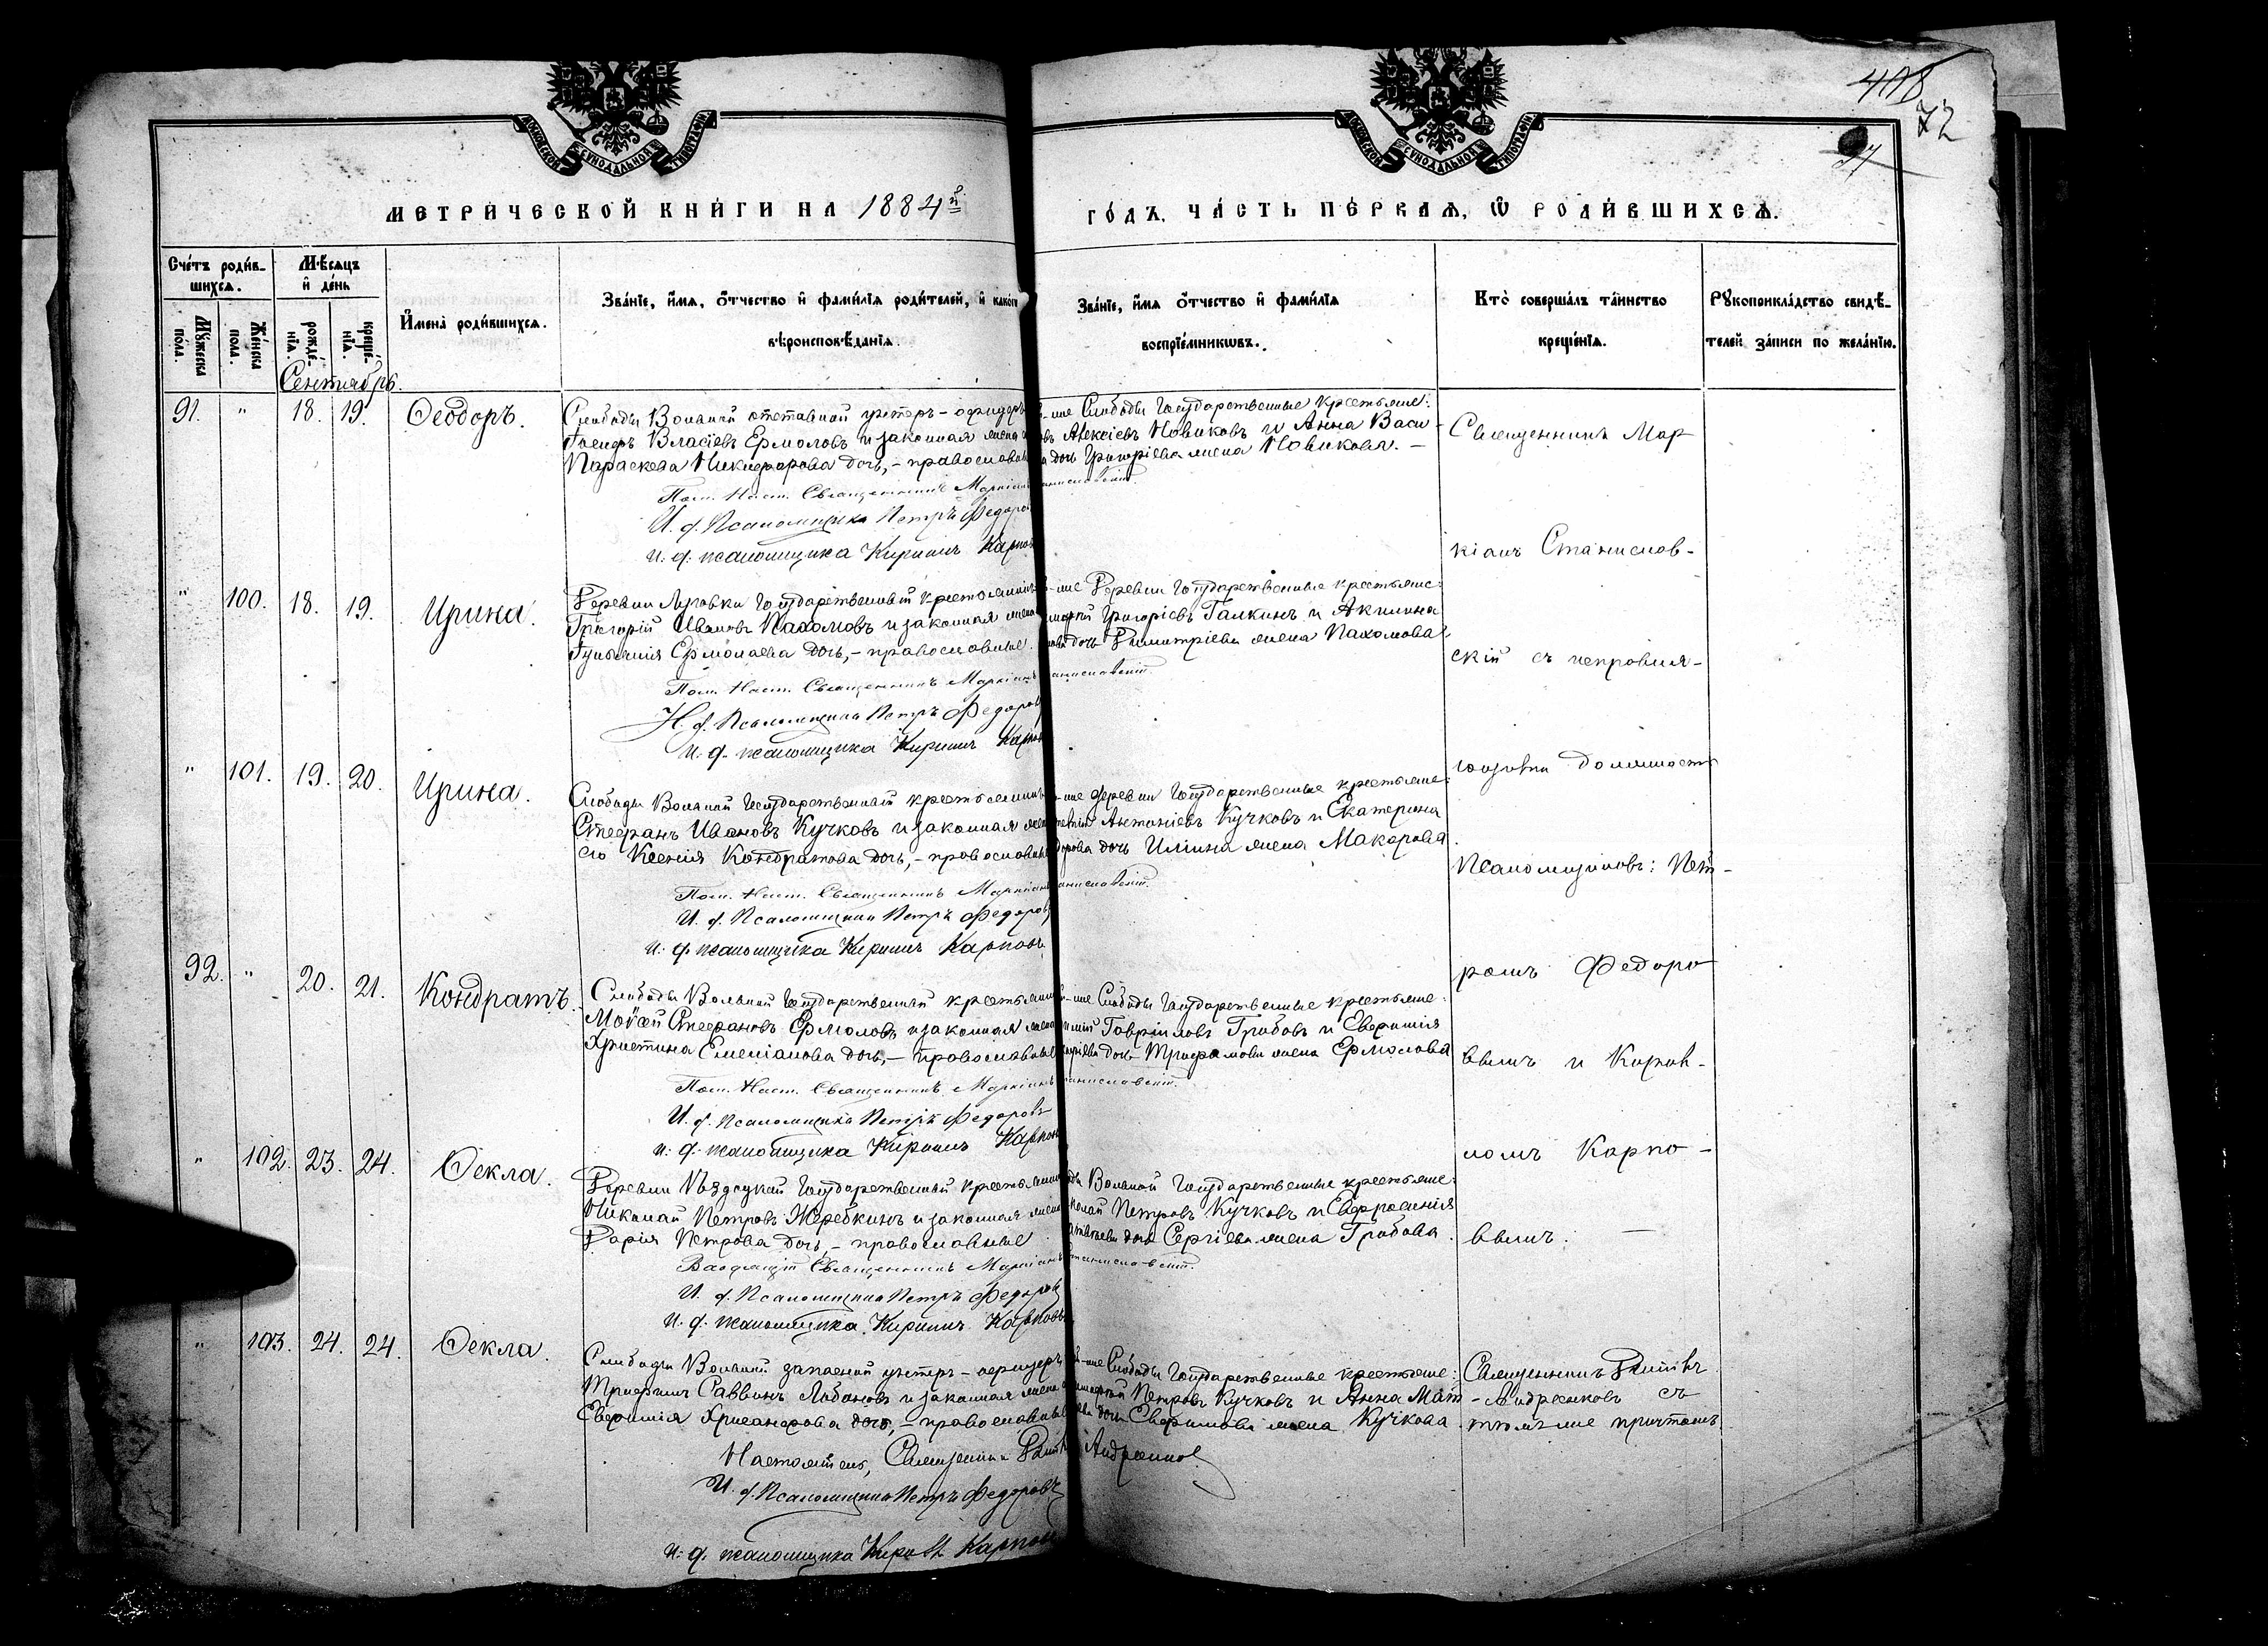 418
72
МОСКОВСКОЙ СУНОДАЛЬНОЙ ТИПОГРАФІИ
МОСКОВСКОЙ СУНОДАЛЬНОЙ ТИПОГРАФІИ
МЕТРИЧЕСКОЙ КНИГИ НА 1884й
ГОДЪ, ЧАСТЬ ПЕРВАЯ, Ѡ РОДИВШИХСЯ.
Счетъ родив-
шихся.
Мужеска пола.
Женска пола.
Мѣсяцъ
и день
рожде-
нія.
креще-
нія.
Имена родившихся.
Званіе, имя, отчество и фамилія родителей, и какого
вѣроисповѣданія.
Званіе, имя отчество и фамилія
воспріемниковъ.
Кто совершалъ таинство
крещенія.
Рукоприкладство свидѣ-
телей записи по желанію.
Сентябрь.
91. " 18. 19. Ѳеодоръ.
Слободы Вольной отставной унтеръ-офицеръ
Власіевъ Ермоловъ и законная жена
Параскева Никифорова дочь, - православные
-же Слободы Государственные крестьяне:
Алексіевъ Новиковъ и Анна Васи-
дочь Григоріева жена Новикова. -
Священникъ Мар
Пом. Наст. Священникъ Маркіанъ Станиславскій.
И. д. Псаломщика Петръ Федоровъ
и. д. псаломщика Кириллъ Карповъ
кіанъ Станислав-
" 100. 18. 19. Ирина.
Деревни Луговки Государственный крестьянинъ
Григорій Ивановъ Пахомовъ и законная жена
Гликерія Ермолаева дочь, - православные.
-же Деревни Государственные крестьяне:
Григоріевъ Галкинъ и Акилина
дочь Димитріева жена Пахомова
скій съ исправля-
Пом. Наст. Священникъ Маркіанъ Станиславскій.
И. д. Псаломщика Петръ Федоровъ
и. д. псаломщика Кириллъ Карповъ
" 101. 19. 20. Ирина.
ющими должность
Слободы Вольной Государственный крестьянинъ
Стефанъ Ивановъ Кучковъ и законная жена
его Ксенія Кондратова дочь, - православные
-же деревни Государственные крестьяне:
Антоніевъ Кучковъ и Екатерина
дочь Ильина жена Макарова
псаломщиковъ: Пет-
Пом. Наст. Священникъ Маркіанъ Станиславскій.
И. д. Псаломщика Петръ Федоровъ
и. д. псаломщика Кириллъ Карповъ
92. " 20. 21. Кондратъ.
ромъ Федоро
Слободы Вольной Государственный крестьянинъ
Моѵсей Стефановъ Ермоловъ и законная жена
Христина Емеліанова дочь, - православные
-же Слободы Государственные крестьяне:
Гавріиловъ Грибовъ и Евфимія
дочь Трифонова жена Ермолова
вымъ и Кирил-
Пом. Наст. Священникъ Маркіанъ Станиславскій.
И. д. Псаломщика Петръ Федоровъ
и. д. псаломщика Кириллъ Карповъ
ломъ Карпо-
" 102. 23. 24. Ѳекла.
Деревни Государственный крестьянинъ
Николай Петровъ Жеребкинъ и законная жена
Дарія Петрова дочь, - православные
Вольной Государственные крестьяне:
Николай Петровъ Кучковъ и Евфросинія
дочь Сергіева жена Грибова.
вымъ. -
Священникъ Маркіанъ Станиславскій.
И. д. Псаломщика Петръ Федоровъ
и. д. псаломщика Кириллъ Карповъ
" 103. 24. 24. Ѳекла.
Слободы Вольной запасной унтеръ-офицеръ
Трифиллъ Саввинъ Лобановъ и законная жена
Евфимія Хрисанфова дочь, - православные
-же Слободы Государственные крестьяне:
Петровъ Кучковъ и Анна Мат-
дочь Евфимова жена Кучкова.
Священникъ Димитрій
Андреевковъ съ
тѣмъ же причтомъ
Настоятель, Священникъ
И. д. Псаломщика Петръ Федоровъ
и. д. псаломщика Кириллъ Карповъ